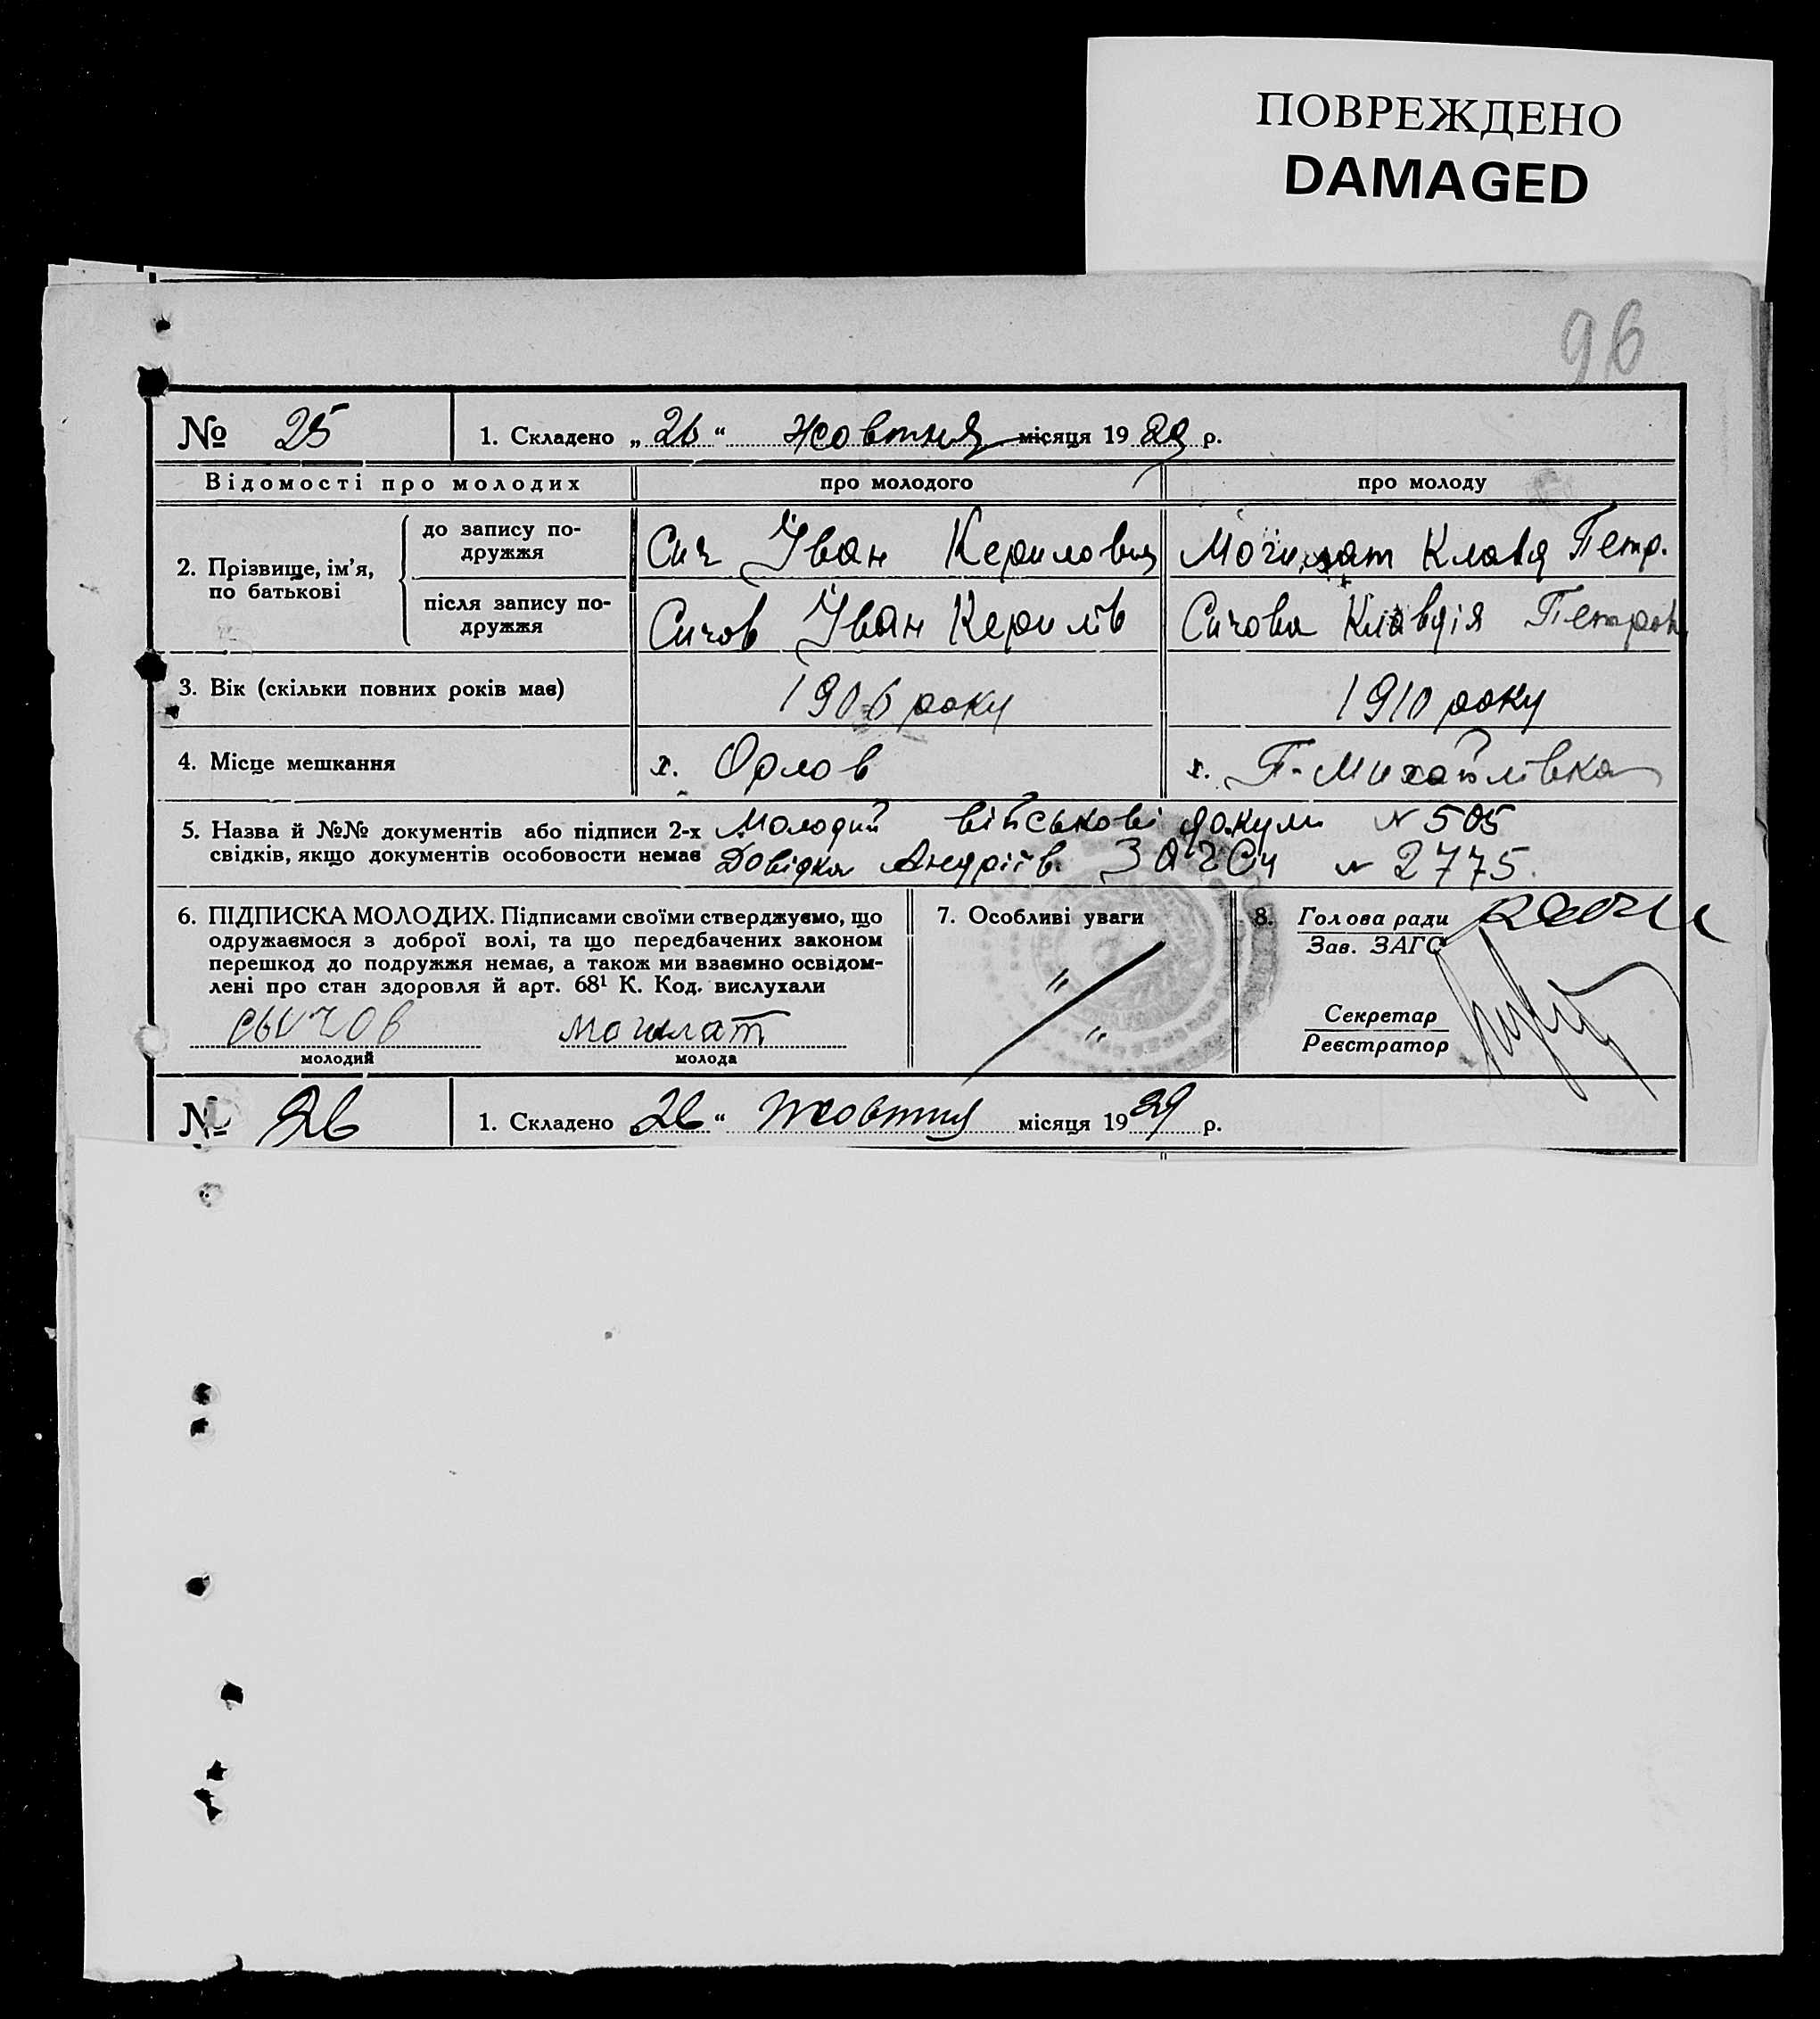 ПОВРЕЖДЕНО
DAMAGED
96
№ 25 1. Складено „ 26 “ Жовтня місяця 19 29 р.
Відомості про молодих про молодого про молоду
2. Прізвище, ім’я, по батькові
до запису подружжя Сич Іван Керилович Могилат Клавд Петр.
після запису подружжя Сичов Іван Керилів Сичова Клавдія Петров
3. Вік (скільки повних років має) 1906 року 1910 року
4. Місце мешкання х. Орлов х. П-Михайлівка
5. Назва й №№ документів або підписи 2-х Молодий військові докум N 505
свідків, якщо документів особовости немає Довідка Андріїв. ЗАГСу N 2775.
6. ПІДПИСКА МОЛОДИХ. Підписами своїми стверджуємо, що
одружаємося з доброї волі, та що передбачених законом
перешкод до подружжя немає, а також ми взаємно освідом-
лені про стан здоровля й арт. 68¹ К. Код. вислухали
сычов могилат
молодий молода
7. Особливі уваги
" "
8. Голова ради
Зав. ЗАГС
Секретар
Реєстратор
№ 26 1. Складено 26 “ Жовтня місяця 19 29 р.